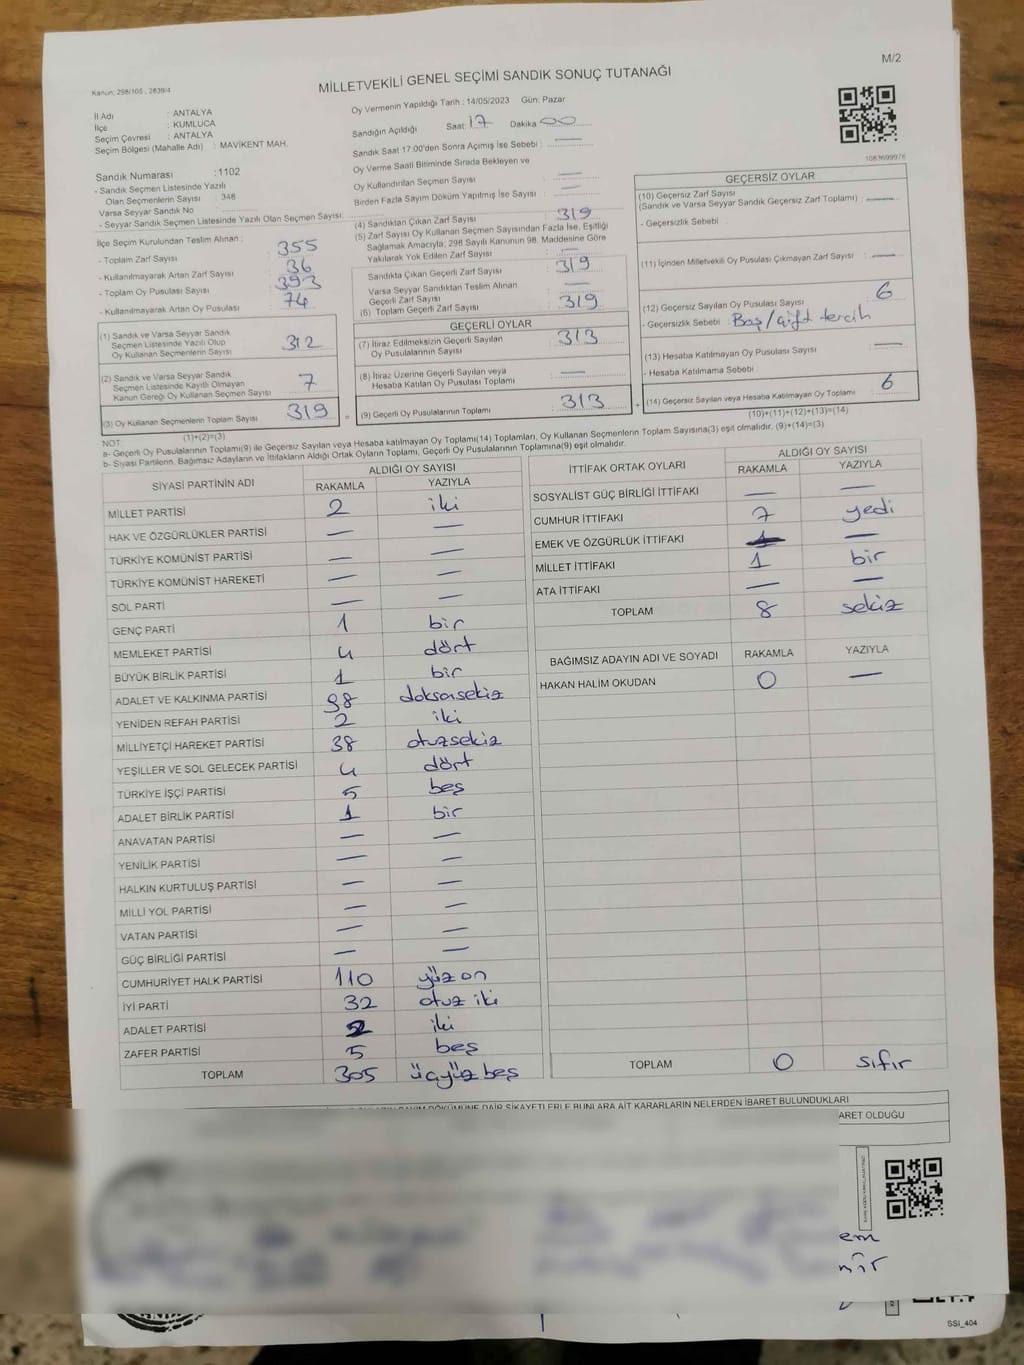 M/2
Kanun: 298/105, 2839/4
MİLLETVEKİLİ GENEL SEÇİMİ SANDIK SONUÇ TUTANAĞI
İl Adı : ANTALYA
İlçe : KUMLUCA
Seçim Çevresi : ANTALYA
Seçim Bölgesi (Mahalle Adı) : MAVİKENT MAH.
Sandık Numarası : 1102
- Sandık Seçmen Listesinde Yazılı
Olan Seçmenlerin Sayısı : 348
Varsa Seyyar Sandık No :
- Seyyar Sandık Seçmen Listesinde Yazılı Olan Seçmen Sayısı:
İlçe Seçim Kurulundan Teslim Alınan :
- Toplam Zarf Sayısı : 355
- Kullanılmayarak Artan Zarf Sayısı : 36
- Toplam Oy Pusulası Sayısı : 393
- Kullanılmayarak Artan Oy Pusulası : 74
(1) Sandık ve Varsa Seyyar Sandık
Seçmen Listesinde Yazılı Olup
Oy Kullanan Seçmenlerin Sayısı : 312
(2) Sandık ve Varsa Seyyar Sandık
Seçmen Listesinde Kayıtlı Olmayan
Kanun Gereği Oy Kullanan Seçmen Sayısı : 7
(3) Oy Kullanan Seçmenlerin Toplam Sayısı 319 =
(1)+(2)=(3)
Oy Vermenin Yapıldığı Tarih : 14/05/2023 Gün: Pazar
Sandığın Açıldığı Saat: 17 Dakika 00
Sandık Saat 17:00'den Sonra Açımış İse Sebebi : —
Oy Verme Saati Bitiminde Sırada Bekleyen ve
Oy Kullandırılan Seçmen Sayısı —
Birden Fazla Sayım Döküm Yapılmış İse Sayısı : —
(4) Sandıktan Çıkan Zarf Sayısı : 319
(5) Zarf Sayısı Oy Kullanan Seçmen Sayısından Fazla İse, Eşitliği
Sağlamak Amacıyla; 298 Sayılı Kanunun 98. Maddesine Göre
Yakılarak Yok Edilen Zarf Sayısı : —
Sandıkta Çıkan Geçerli Zarf Sayısı : 319
Varsa Seyyar Sandıktan Teslim Alınan
Geçerli Zarf Sayısı : —
(6) Toplam Geçerli Zarf Sayısı : 319
GEÇERLİ OYLAR
(7) İtiraz Edilmeksizin Geçerli Sayılan
Oy Pusulalarının Sayısı : 313
(8) İtiraz Üzerine Geçerli Sayılan veya
Hesaba Katılan Oy Pusulası Toplamı : —
(9) Geçerli Oy Pusulalarının Toplamı : 313 +
1083699976
GEÇERSİZ OYLAR
(10) Geçersiz Zarf Sayısı
(Sandık ve Varsa Seyyar Sandık Geçersiz Zarf Toplamı) : —
- Geçersizlik Sebebi
(11) İçinden Milletvekili Oy Pusulası Çıkmayan Zarf Sayısı : —
(12) Geçersiz Sayılan Oy Pusulası Sayısı : 6
- Geçersizlik Sebebi : Boş/çift tercih
(13) Hesaba Katılmayan Oy Pusulası Sayısı : —
- Hesaba Katılmama Sebebi
(14) Geçersiz Sayılan veya Hesaba Katılmayan Oy Toplamı : 6
(10)+(11)+(12)+(13)=(14)
NOT:
a- Geçerli Oy Pusulalarının Toplamı(9) ile Geçersiz Sayılan veya Hesaba katılmayan Oy Toplamı(14) Toplamları, Oy Kullanan Seçmenlerin Toplam Sayısına(3) eşit olmalıdır. (9)+(14)=(3)
b- Siyasi Partilerin, Bağımsız Adayların ve İttifakların Aldığı Ortak Oyların Toplamı, Geçerli Oy Pusulalarının Toplamına(9) eşit olmalıdır.
SİYASİ PARTİNİN ADI ALDIĞI OY SAYISI
RAKAMLA YAZIYLA
MİLLET PARTİSİ 2 iki
HAK VE ÖZGÜRLÜKLER PARTİSİ — —
TÜRKİYE KOMÜNİST PARTİSİ — —
TÜRKİYE KOMÜNİST HAREKETİ — —
SOL PARTİ — —
GENÇ PARTİ 1 bir
MEMLEKET PARTİSİ 4 dört
BÜYÜK BİRLİK PARTİSİ 1 bir
ADALET VE KALKINMA PARTİSİ 98 doksansekiz
YENİDEN REFAH PARTİSİ 2 iki
MİLLİYETÇİ HAREKET PARTİSİ 38 otuzsekiz
YEŞİLLER VE SOL GELECEK PARTİSİ 4 dört
TÜRKİYE İŞÇİ PARTİSİ 5 beş
ADALET BİRLİK PARTİSİ 1 bir
ANAVATAN PARTİSİ — —
YENİLİK PARTİSİ — —
HALKIN KURTULUŞ PARTİSİ — —
MİLLİ YOL PARTİSİ — —
VATAN PARTİSİ — —
GÜÇ BİRLİĞİ PARTİSİ — —
CUMHURİYET HALK PARTİSİ 110 yüz on
İYİ PARTİ 32 otuz iki
ADALET PARTİSİ 2 iki
ZAFER PARTİSİ 5 beş
TOPLAM 305 üçyüz beş
İTTİFAK ORTAK OYLARI ALDIĞI OY SAYISI
RAKAMLA YAZIYLA
SOSYALİST GÜÇ BİRLİĞİ İTTİFAKI — —
CUMHUR İTTİFAKI 7 yedi
EMEK VE ÖZGÜRLÜK İTTİFAKI — —
MİLLET İTTİFAKI 1 bir
ATA İTTİFAKI — —
TOPLAM 8 sekiz
BAĞIMSIZ ADAYIN ADI VE SOYADI RAKAMLA YAZIYLA
HAKAN HALİM OKUDAN 0 —
TOPLAM 0 sıfır
DÖKÜMÜNE DAİR ŞİKAYETLERLE BUNLARA AİT KARARLARIN NELERDEN İBARET BULUNDUKLARI
ARET OLDUĞU
SSİ_404